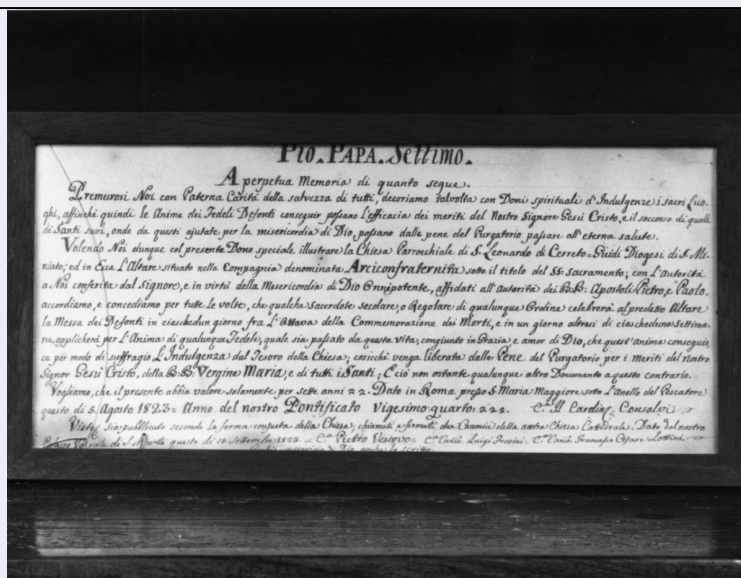 PIO. PAPA. Settimo.
A perpetua Memoria di quanto segue.
Premurosi Noi con Paterna Carità della salvezza di tutti, decoriamo talvolta con Doni spirituali d'Indulgenze i sacri Luo-
ghi, affinché quindi le Anime dei Fedeli Defonti conseguir possano l'efficacia dei meriti del Nostro Signore Gesù Cristo, e il soccorso di quelli
di Santi suoi, onde da questi ajutate per la misericordia di Dio, possano dalle pene del Purgatorio passare all'eterna salute.
Volendo Noi dunque col presente Dono speciale illustrare la Chiesa Parrocchiale di S. Leonardo di Cerreto-Guidi Diogesi di S. Mi-
niato; ed in Essa L'Altare situato nella Compagnia denominata Arciconfraternita sotto il titolo del SS: Sacramento; con l'Autorità
a Noi conferita dal Signore, e in virtù della Misericordia di Dio Onnipotente, affidati all'Autorità dei B.B: Apostoli Pietro, e Paolo.
accordiamo, e concediamo per tutte le volte, che qualche Sacerdote secolare, o Regolare di qualunque Ordine celebrerà al predetto Altare
la Messa dei Defonti in ciaschedun giorno fra L'Ottava della Commemorazione dei Morti, e in un giorno altresì di ciascheduna Settima-
na, applicherà per L'Anima di qualunque Fedele, quale sia passato da questa vita, congiunto in Grazia, e amor di Dio, che quest'anima consegui-
ca per modo di suffragio L'Indulgenza dal Tesoro della Chiesa; cosicché venga liberata dalle Pene del Purgatorio per i meriti del nostro
Signor Gesù Cristo, della B.B: Vergine Maria, e di tutti i Santi, E ciò non ostante qualunque altro Documento a questo contrario.
Vogliamo, che il presente abbia valore solamente per sette anni 22. Dato in Roma presso S. Maria Maggiore sotto L'Anello del Pescatore
questo dì 5. Agosto 1823= Anno del nostro Pontificato Vigesimo quarto: 222. C.o Il Cardin. Consalvi
Visto, sia pubblicato secondo la forma consueta della Chiesa; chiamati e firmati due Canonici della nostra Chiesa Cattedrale. Dato dal nostro
questo dì 12 Settembre C.o Pietro Vescovo - C.o Canco Luigi C.o Canco Francesco Cesare Lottini